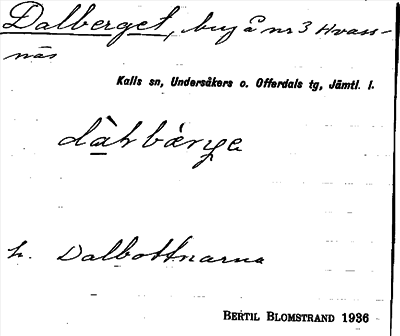 Dalberget, bug å nr 3 Hvass-
näs
Kalls sn, Undersåkers o. Offerdals tg, Jämtl. l.
h. Dalbottnarna
BERTIL BLOMSTRAND 1936